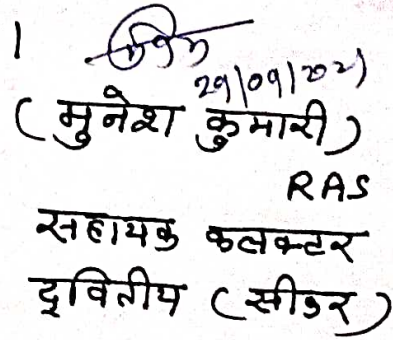 1
29/09/2021
(मुनेश कुमारी)
RAS
सहायक कलक्टर
द्वितीय (सीकर)